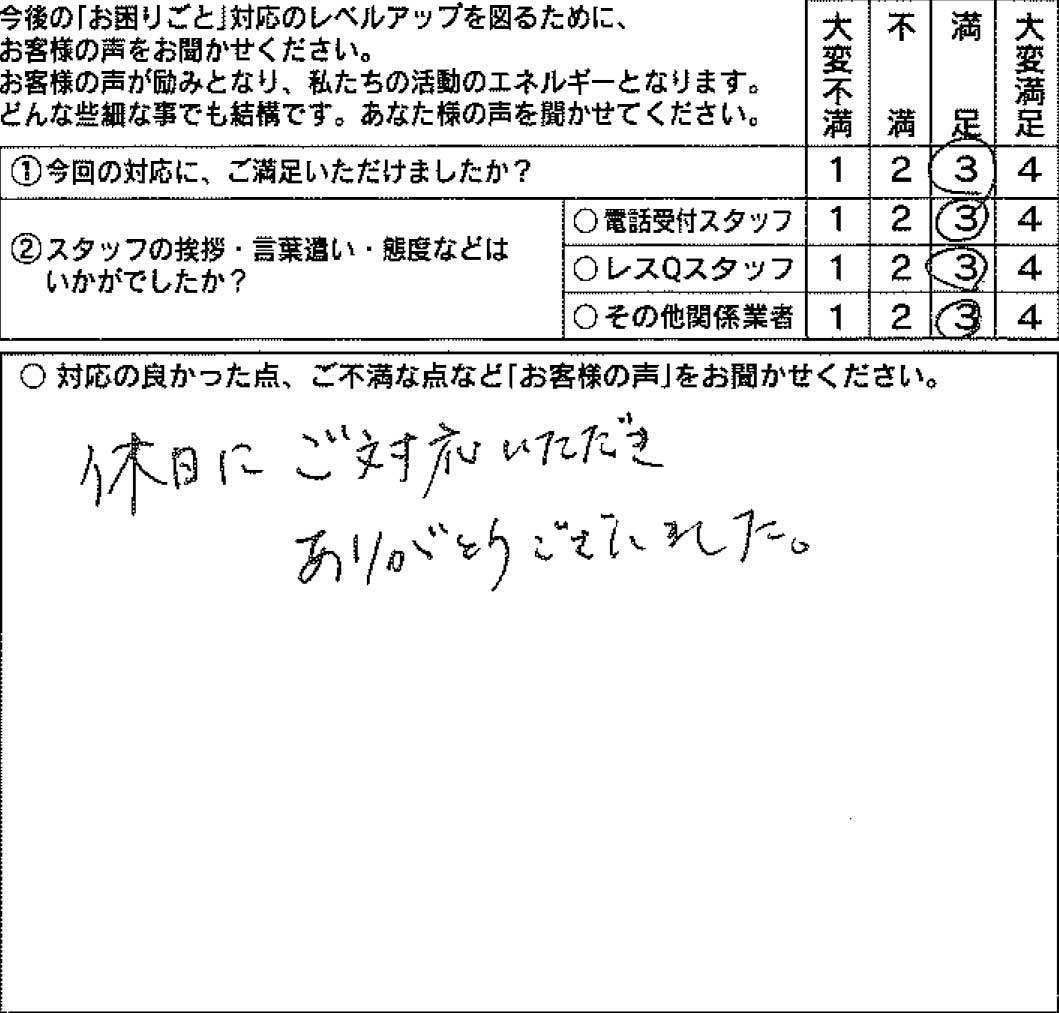 今後の「お困りごと」対応のレベルアップを図るために、
お客様の声をお聞かせください。
お客様の声が励みとなり、私たちの活動のエネルギーとなります。
どんな些細な事でも結構です。あなた様の声を聞かせてください。
大変不満 不満 満足 大変満足
①今回の対応に、ご満足いただけましたか? 1 2 3 4
②スタッフの挨拶・言葉遣い・態度などは
いかがでしたか?
○電話受付スタッフ 1 2 3 4
○レスQスタッフ 1 2 3 4
○その他関係業者 1 2 3 4
○ 対応の良かった点、ご不満な点など「お客様の声」をお聞かせください。
休日にご対応いただき
ありがとうございました。